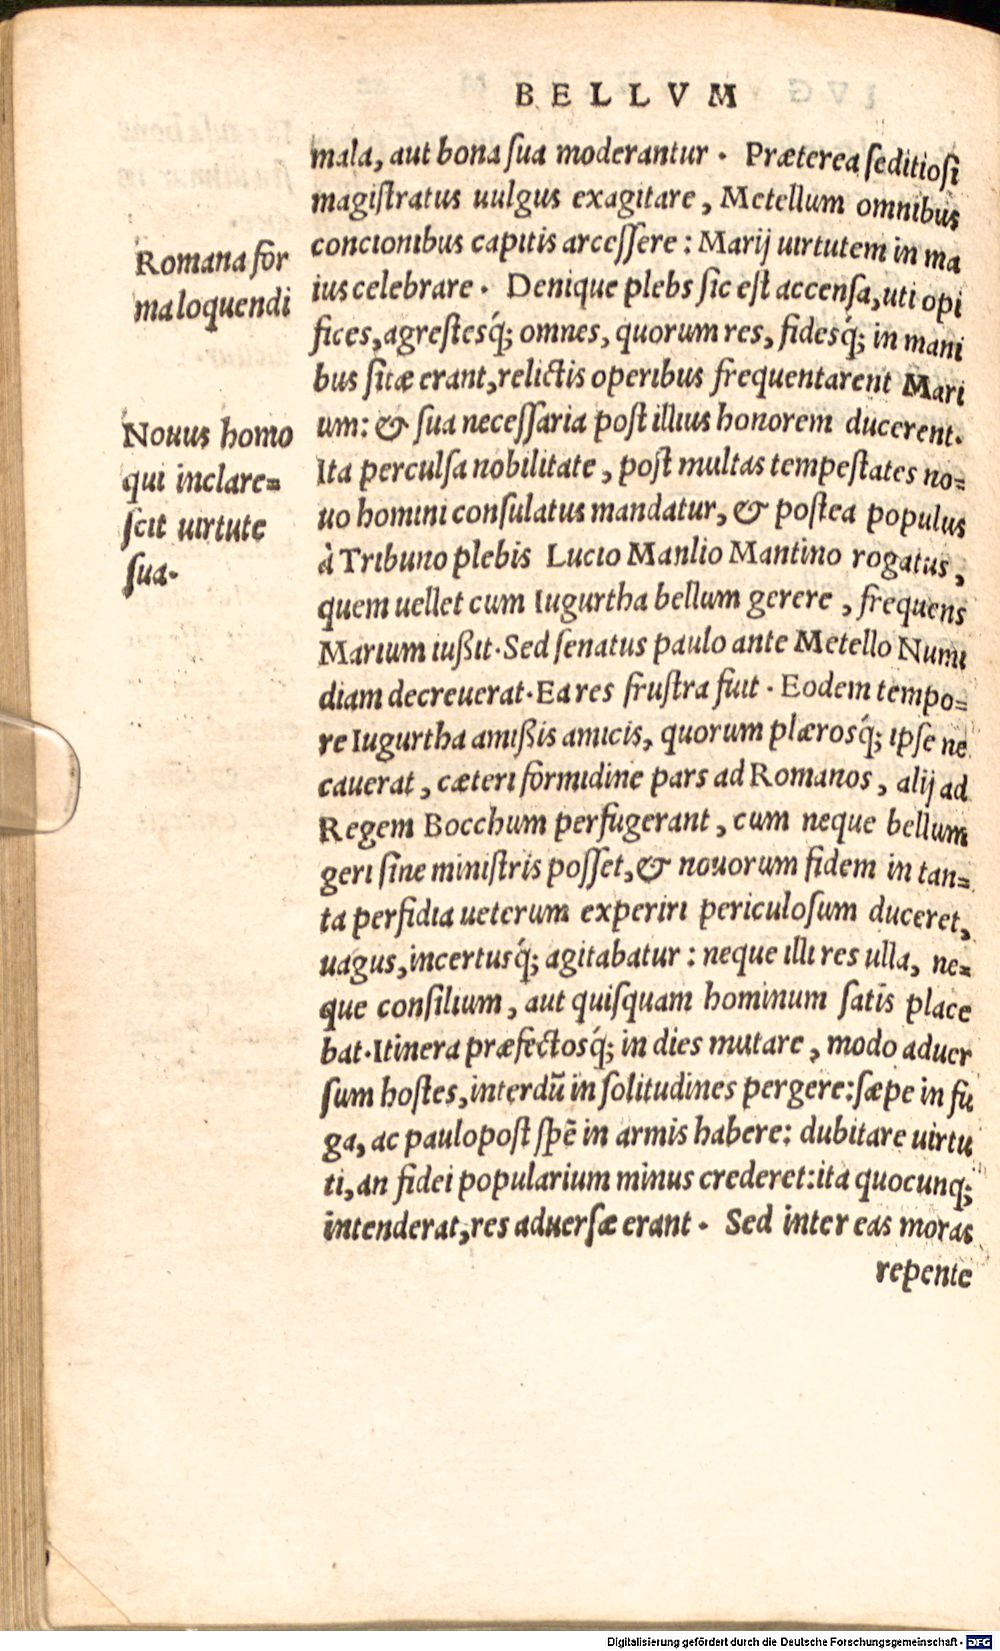 BELLVM
mala, aut bona ſua moderantur . Præterea ſeditioſi
magiſtratus uulgus exagitare, Metellum omnibus
concionibus capitis arceſſere : Marij uirtutem in ma
ius celebrare . Denique plebs ſic eſt accenſa, uti opi
fices, agreſtesq́; omnes, quorum res, fidesq́; in mani
bus ſitæ erant, relictis operibus frequentarent Mari
um: & ſua neceſſaria poſt illius honorem ducerent.
Ita perculſa nobilitate, poſt multas tempeſtates no=
uo homini conſulatus mandatur, & poſtea populus
à Tribuno plebis Lucio Manlio Mantino rogatus,
quem uellet cum Iugurtha bellum gerere, frequens
Marium iußit. Sed ſenatus paulo ante Metello Numi
diam decreuerat. Ea res fruſtra fuit . Eodem tempo=
re Iugurtha amißis amicis, quorum plærosq́; ipſe ne
cauerat, cæteri formidine pars ad Romanos, alij ad
Regem Bocchum perfugerant, cum neque bellum
geri ſine miniſtris poſſet, & nouorum fidem in tan=
ta perfidia ueterum experiri periculoſum duceret,
uagus, incertusq́; agitabatur : neque illi res ulla, ne=
que conſilium, aut quiſquam hominum ſatis place
bat. Itinera præfectosq́; in dies mutare, modo aduer
ſum hoſtes, interdū in ſolitudines pergere: ſæpe in fu
ga, ac paulopoſt ſpē in armis habere: dubitare uirtu
ti, an fidei popularium minus crederet: ita quocunq;
intenderat, res aduerſæ erant . Sed inter eas moras
repente
Romana for
ma loquendi
Nouus homo
qui inclare=
ſcit uirtute
ſua.
Digitalisierung gefördert durch die Deutsche Forschungsgemeinschaft - DFG